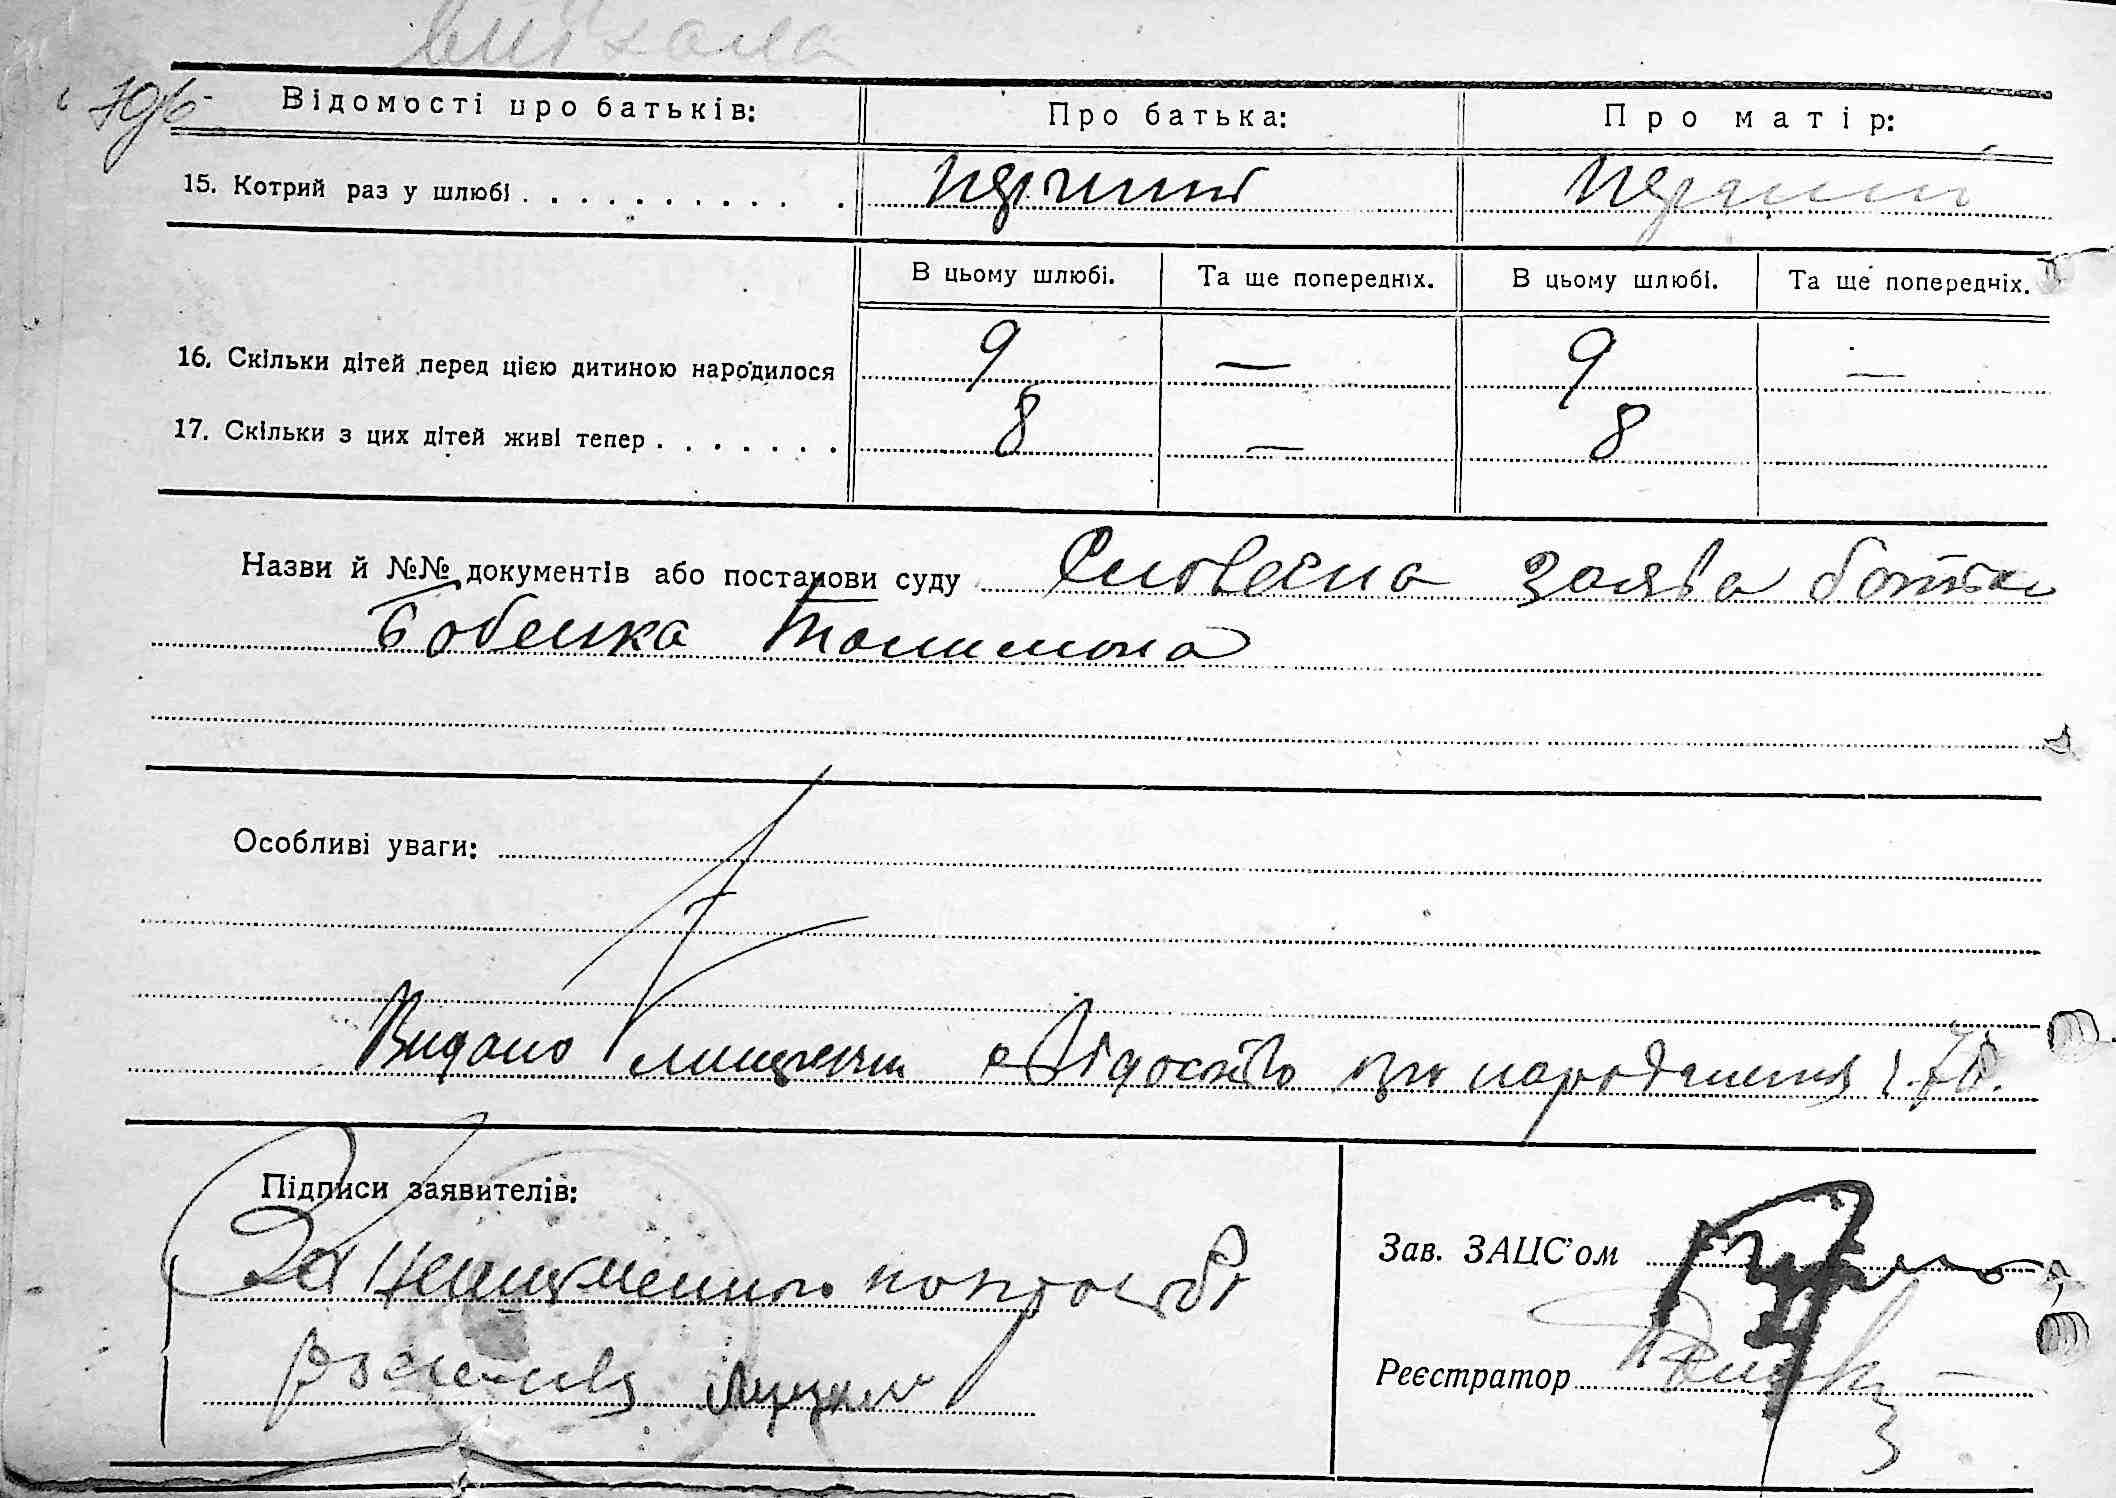 Відомості про батьків: Про батька: Про матір:
15. Котрий раз у шлюбі . . . . . . . . . . . . перший перший
В цьому шлюбі. Та ще попередніх. В цьому шлюбі. Та ще попередніх.
16. Скільки дітей перед цією дитиною народилося 9 — 9 —
17. Скільки з цих дітей живі тепер . . . . . . . 8 — 8
Назви й №№ документів або постанови суду Словесна заява батька
Бобенка
Особливі уваги:
Видано свідоство про народження
Підписи заявителів:
За неписьменного
Зав. ЗАЦС'ом
Реєстратор